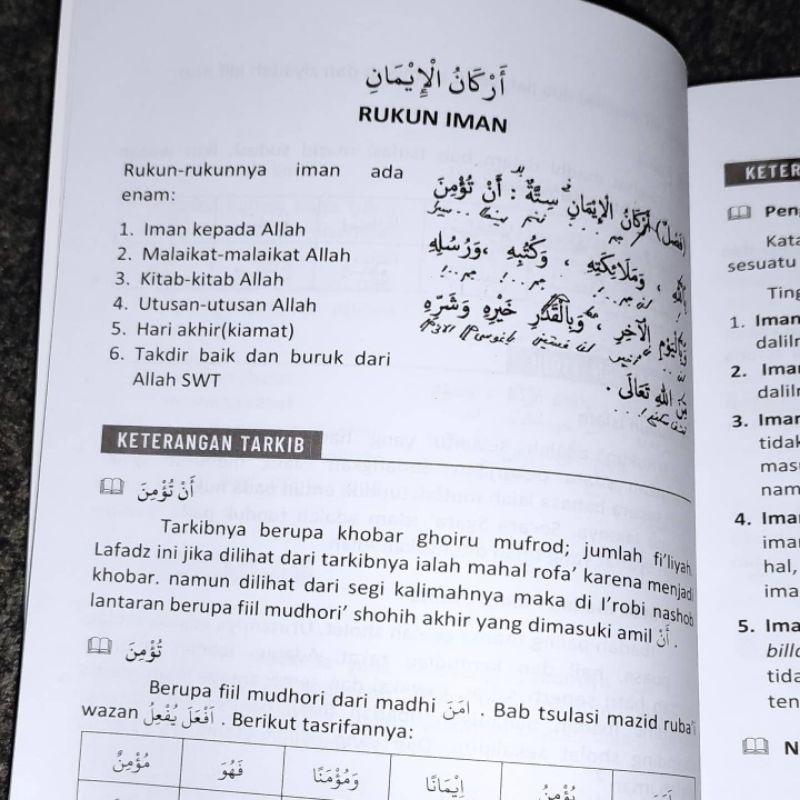 أَرْكَانُ الْإِيْمَانِ
RUKUN IMAN
Rukun-rukunnya iman ada
enam:
1. Iman kepada Allah
2. Malaikat-malaikat Allah
3. Kitab-kitab Allah
4. Utusan-utusan Allah
5. Hari akhir(kiamat)
6. Takdir baik dan buruk dari
Allah SWT
(فَصْلٌ) أَرْكَانُ الْإِيْمَانِ سِتَّةٌ : أَنْ تُؤْمِنَ
بِاللهِ ، وَمَلَائِكَتِهِ ، وَكُتُبِهِ ، وَرُسُلِهِ
وَبِالْيَوْمِ الْآخِرِ ، وَبِالْقَدَرِ خَيْرِهِ وَشَرِّهِ
مِنَ اللهِ تَعَالَى .
KETERANGAN TARKIB
أَنْ تُؤْمِنَ
Tarkibnya berupa khobar ghoiru mufrod; jumlah fi'liyah.
Lafadz ini jika dilihat dari tarkibnya ialah mahal rofa' karena menjadi
khobar. namun dilihat dari segi kalimahnya maka di I'robi nashob
lantaran berupa fiil mudhori' shohih akhir yang dimasuki amil أَنْ .
تُؤْمِنَ
Berupa fiil mudhori dari madhi امَنَ . Bab tsulasi mazid ruba'i
wazan اَفْعَلَ يُفْعِلُ . Berikut tasrifannya:
يُؤْمِنُ إِيْمَانًا وَمُؤْمَنًا فَهُوَ مُؤْمِنٌ
KETER
Pen
Kata
sesuatu
Ting
1. Iman
dalil
2. Imar
dalil
3. Imar
tidak
mas
nam
4. Imar
imar
hal,
ima
5. Ima
billa
tida
ten
N